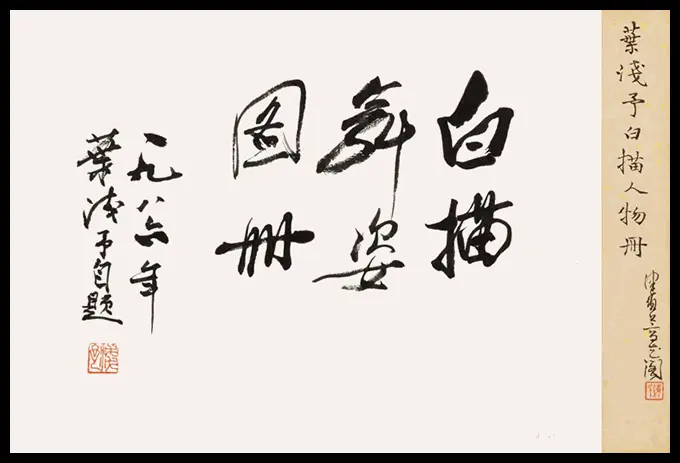 葉淺予白描人物冊
白描
舞姿
图册
一九八六年
葉浅予自题